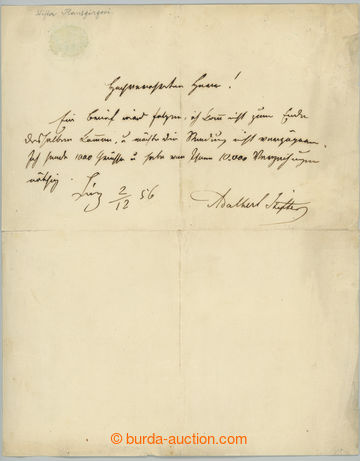 Hochverehrter Herr!
Ein Brief wird folgen, ich kam nicht zum Ende
desselben kommen, u möchte die Sendung nicht verzögern.
Ich sende 1000 Grüsse u habe von Ihnen 10.000 Verzeihungen
nöthig.
Linz 2/12 56
Adalbert Stifter
© burda-auction.com